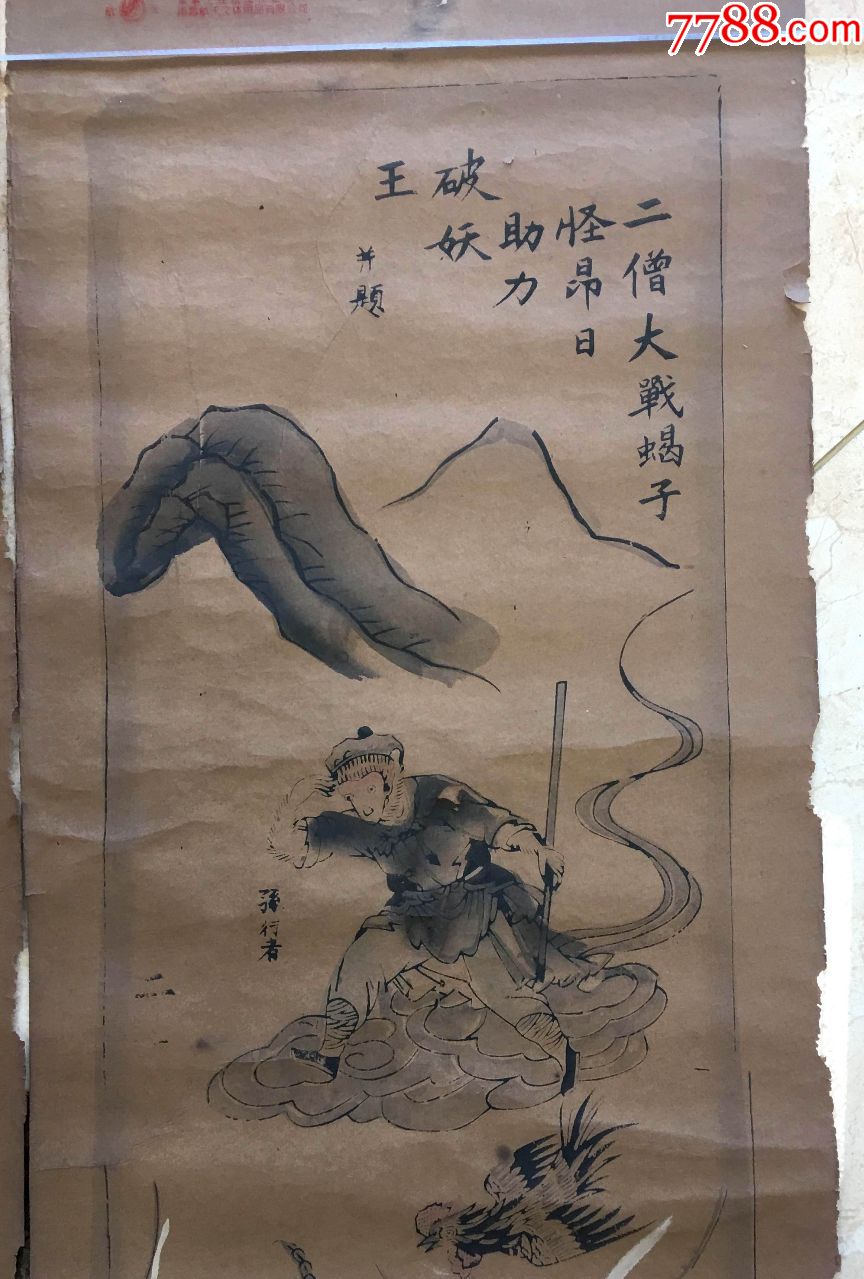 7788.com
二僧大戰蝎子
怪昴日
助力
破妖
王
并題
孫行者
二